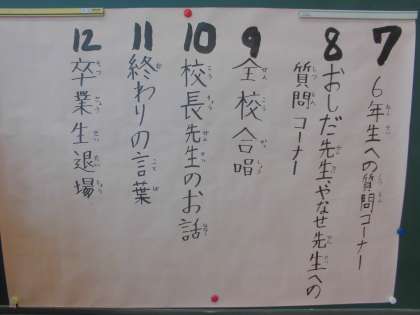 7 6年生への質問コーナー
8 おしだ先生、やなせ先生への
質問コーナー
9 全校合唱
10 校長先生のお話
11 終わりの言葉
12 卒業生退場